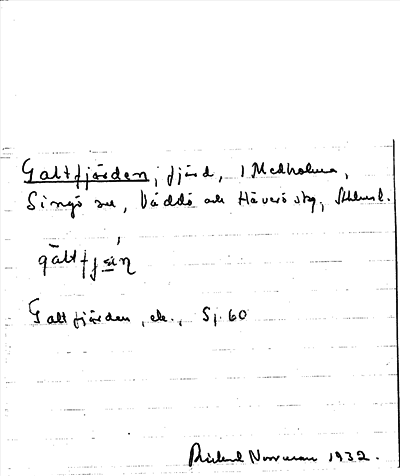 Galtfjärden, fjärd, i Medholma,
Singö sn, Väddö och Häverö skg, Sthlms l.
gàltfjæ̀ṇ
Galtfjärden, ek., Sj. 60
Rickard Norrman 1932.